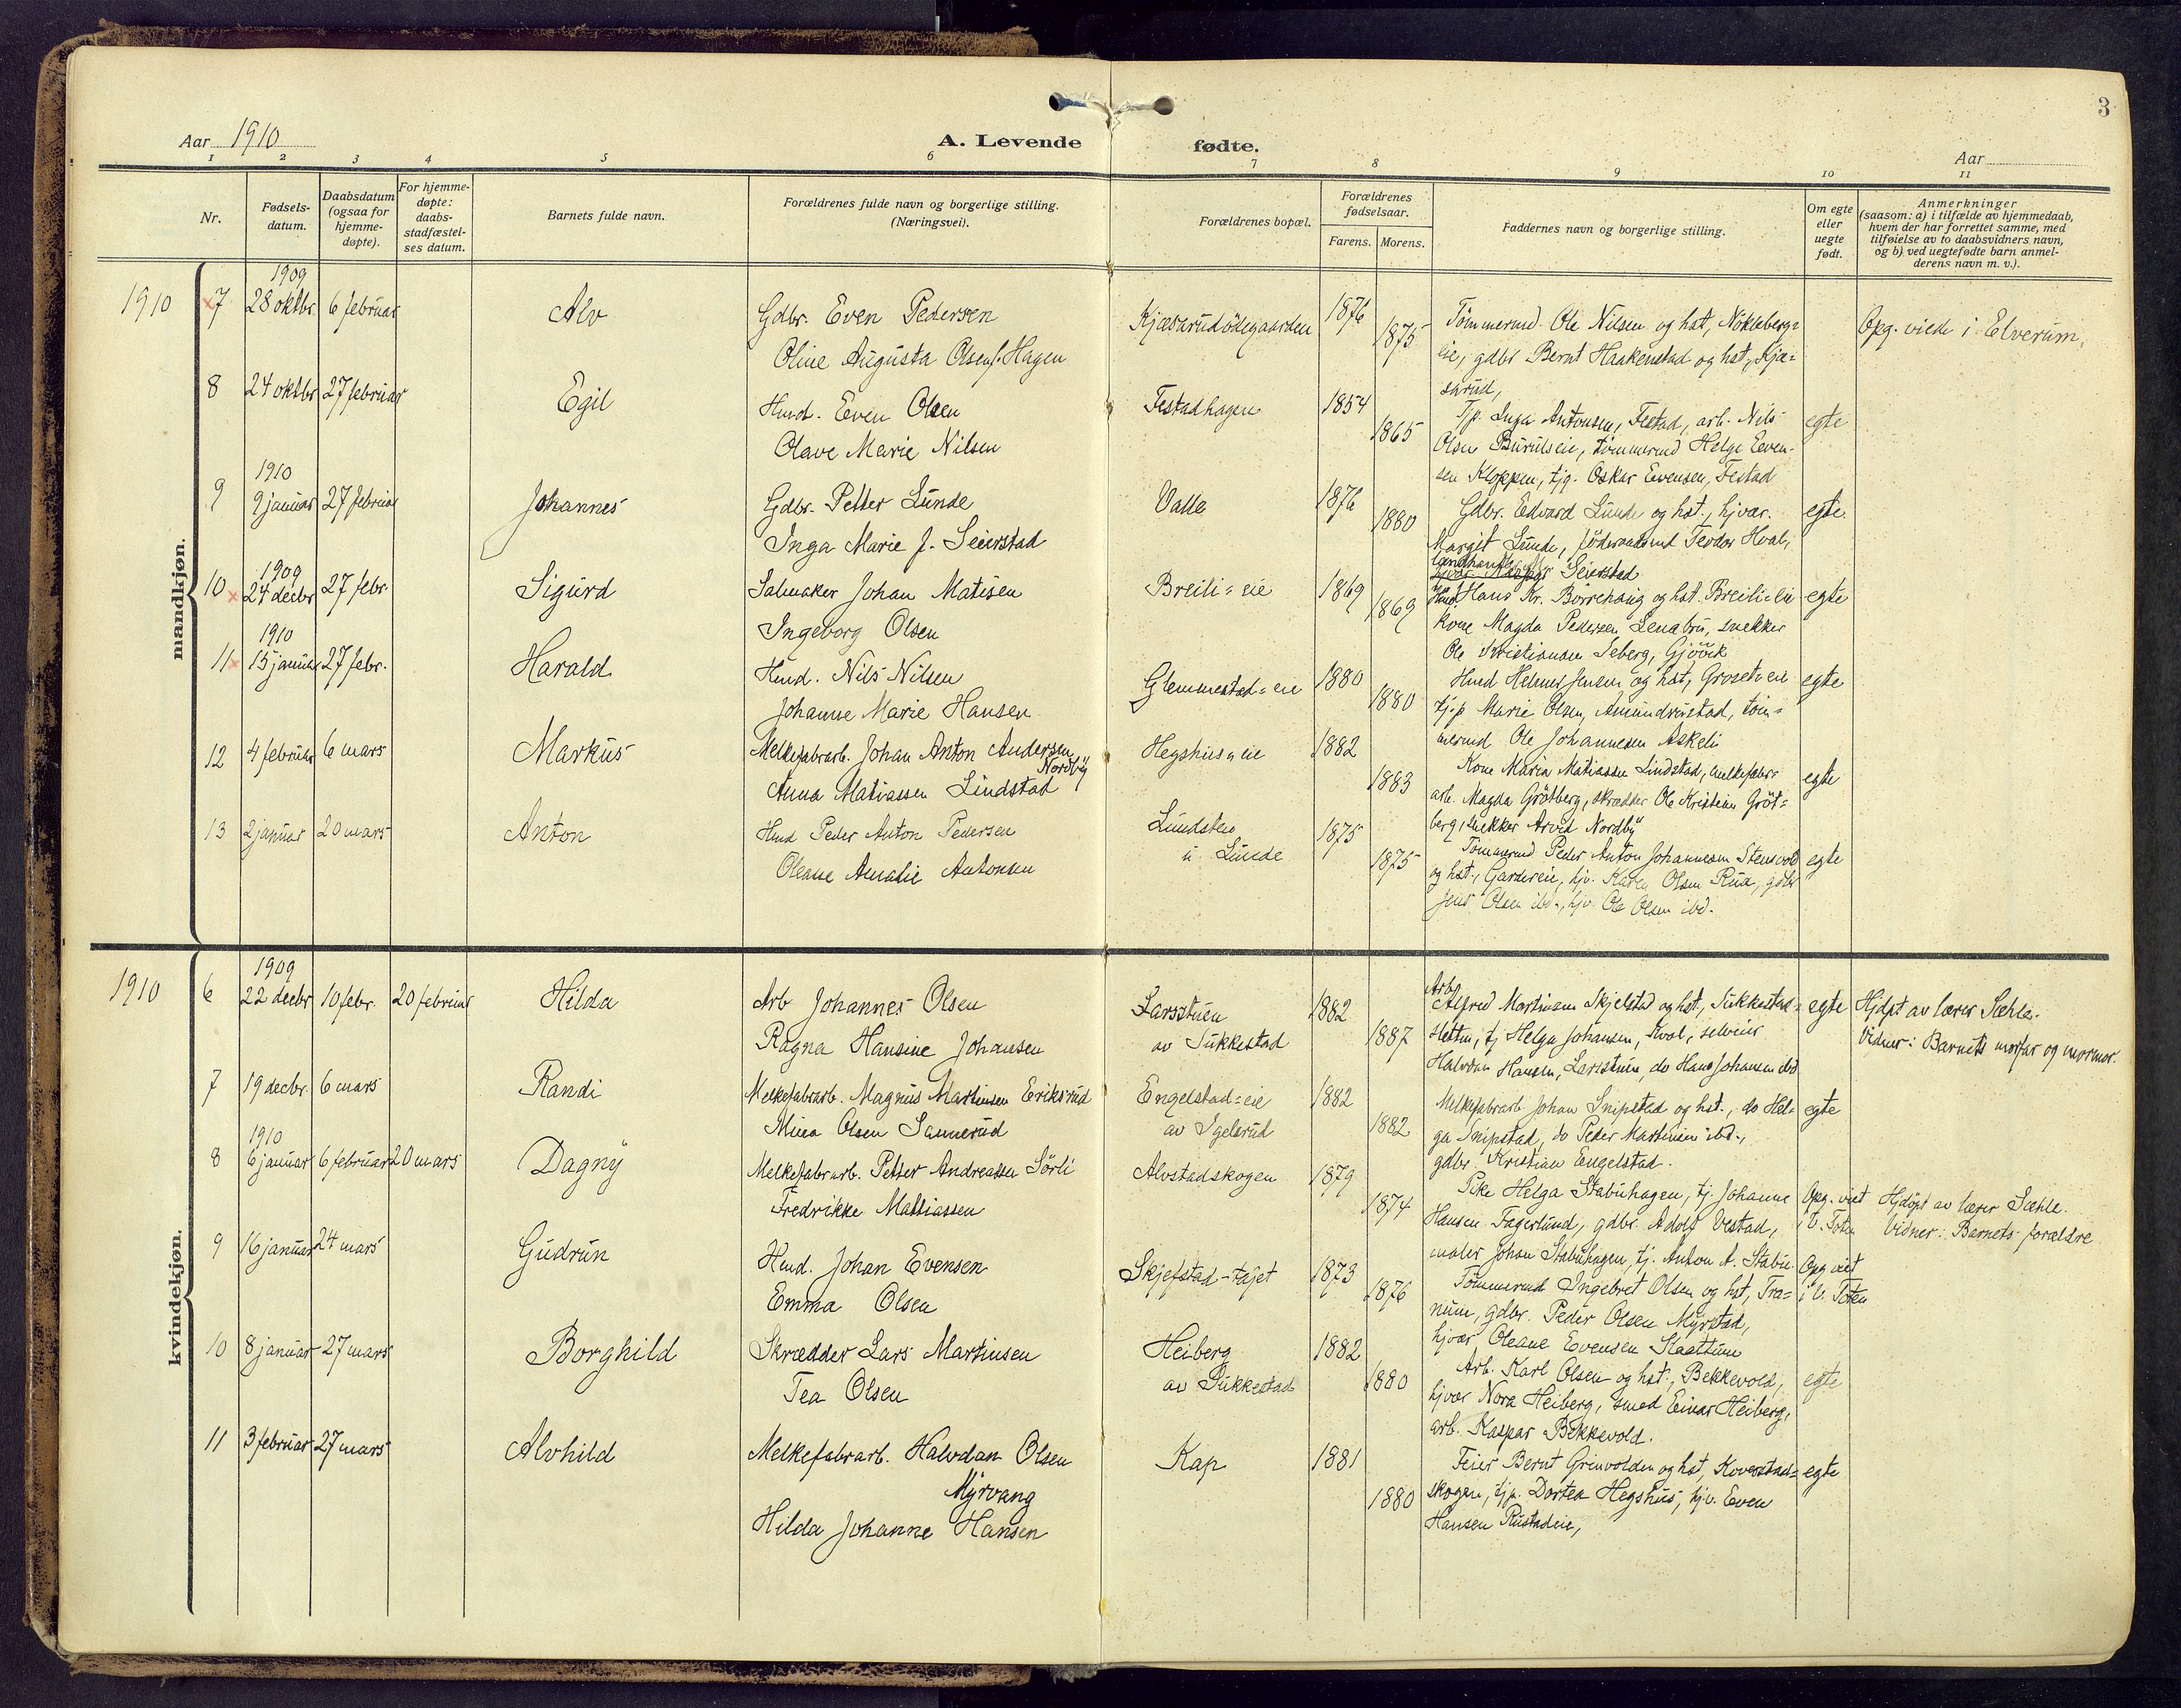 3
Aar 1910
A. Levende fødte.
Aar
1 2 3 4 5 6 7 8 9 10 11
Nr.
Fødselsdatum.
Daabsdatum (ogsaa for hjemmedøpte).
For hjemmedøpte: daabsstadfæstelses datum.
Barnets fulde navn.
Forældrenes fulde navn og borgerlige stilling. (Næringsvei).
Forældrenes bopæl.
Forældrenes fødselsaar.
Farens. Morens.
Faddernes navn og borgerlige stilling.
Om egte eller uegte født.
Anmerkninger
(saasom: a) i tilfælde av hjemmedaab,
hvem der har forrettet samme, med
tilføielse av to daabsvidners navn,
og b) ved uegtefødte barn anmel-
derens navn m. v.).
mandkjøn.
1910
7 1909 28 oktbr. 6 februar Alv
Gdbr. Even Pedersen
Oline Augusta Olsen f. Hagen
Kjæsarudødegaarden 1876 1875
Tømmermd. Ole Nilsen og hst, Nøkleberg=
eie, gdbr Bernt Haakenstad og hst, Kjæ=
sarud,
Opg. viede i Elverum,
8 24 oktbr 27 februar Egil
Hmd. Even Olsen
Olave Marie Nilsen
Festadhagen 1854 1865
Tjp. Inga Antonsen, Festad, arb. Nils
Olsen Burulseie, tømmermd Helge Even-
sen Kloppen, tjg. Oskar Evensen, Festad
egte
9 1910 9 januar 27 februar Johannes
Gdbr. Petter Lunde
Inga Marie f. Seierstad
Valle 1876 1880
Gdbr. Edvard Lunde og hst., hjvær.
Margit Lunde, føderaadsmd Teodor Hval,
landhandler Seierstad
egte.
10 1909 24 decbr 27 febr. Sigurd
Salmaker Johan Matisen
Ingeborg Olsen
Breili=eie 1869 1869
Hmd. Hans Kr. Borrehaug og hst. Breili=eie
kone Magda Pedersen Lenabru, snekker
Ole Kristiansen Seberg, Gjövik
egte
11 1910 15 januar 27 febr. Harald
Hmd. Nils Nilsen
Johanne Marie Hansen
Glemmestad=eie 1880 1880
Hmd Helmer Jensen og hst, Groset=eie
tj.p Marie Olsen, Amundrustad, tøm=
mermd Ole Johannesen Askeli
egte
12 4 februar 6 mars Markus
Melkefabrarb. Johan Anton Andersen
Nordby
Anna Matiassen Lindstad
Hegshus=eie 1882 1883
Kone Maria Matiassen Lindstad, melkefabr=
arb. Magda Grøtberg, skrædder Ole Kristian Grøt=
berg, snekker Arvid Nordby
egte
13 2 januar 20 mars Anton
Hmd Peder Anton Pedersen
Oleane Amalie Antonsen
Lundsten
u Lunde 1875 1875
Tømmermd Peder Anton Johannesen Stensvold
og hst., Gardereie, hjv. Karen Olsen Rua, gdbr
Jens Olsen ibd., hjv. Ole Olsen ibd.
egte
kvindekjøn.
1910
6 1909 22 decbr 10 febr. 20 februar Hilda
Arb Johannes Olsen
Ragna Hansine Johansen
Larsstuen
av Sukkestad 1882 1887
Arb.
Alfred Martinsen Skjelstad og hst, Sukkestad=
Helga Johansen, Kvol, selveier
Halvdan Hansen, Larsstuen, do Hans Johansen ibd
egte
Hjdpt av lærer Sæhle.
Vidner: Barnets morfar og mormor.
7 19 decbr. 6 mars Randi
Melkefabrarb. Magnus Martinsen Eriksrud
Mina Olsen Sannerud
Engelstad=eie
av Igelsrud 1882 1882
Melkefabrarb. Johan Snipstad og hst., do Hel-
ga Snipstad, do Peder Martinsen ibd.,
gdbr. Kristian Engelstad.
egte
8 1910 6 januar 6 februar 20 mars Dagny
Melkefabrarb. Petter Andreassen Sörli
Fredrikke Mattiassen
Alvstadskogen 1879 1874
Pike Helga Stabuhagen, tj. Johanne
Hansen Fagerlund, gdbr. Adolf Vestad,
maler Johan Stabuhagen, tj. Anton A. Stabu.
Opg. viet
i V. Toten
Hjdöpt av lærer Sæhle.
Vidner: Barnets forældre
9 16 januar 24 mars Gudrun
Hmd. Johan Evensen
Emma Olsen
Skjefstad-tajet 1873 1876
Tømmermd Ingebret Olsen og hst, Tra=
num, gdbr. Peder Olsen Myrstad,
hjvær Oleane Evensen Skattum
Opg viet
i V. Toten
10 8 januar 27 mars Borghild
Skrædder Lars Martinsen
Tea Olsen
Heiberg
av Sukkestad 1882 1880
Arb. Karl Olsen og hst., Bekkevold,
hjvær Nora Heiberg, smed Einar Heiberg,
arb. Kaspar Bekkevold.
egte
11 3 februar 27 mars Alvhild
Melkefabrarb. Halvdan Olsen
Myrvang
Hilda Johanne Hansen
Kap 1881 1880
Feier Bernt Grønvolden og hst, Koverstad=
skogen, tjp. Dortea Hegshus, hjv. Even
Hansen Rustadeie,
egte